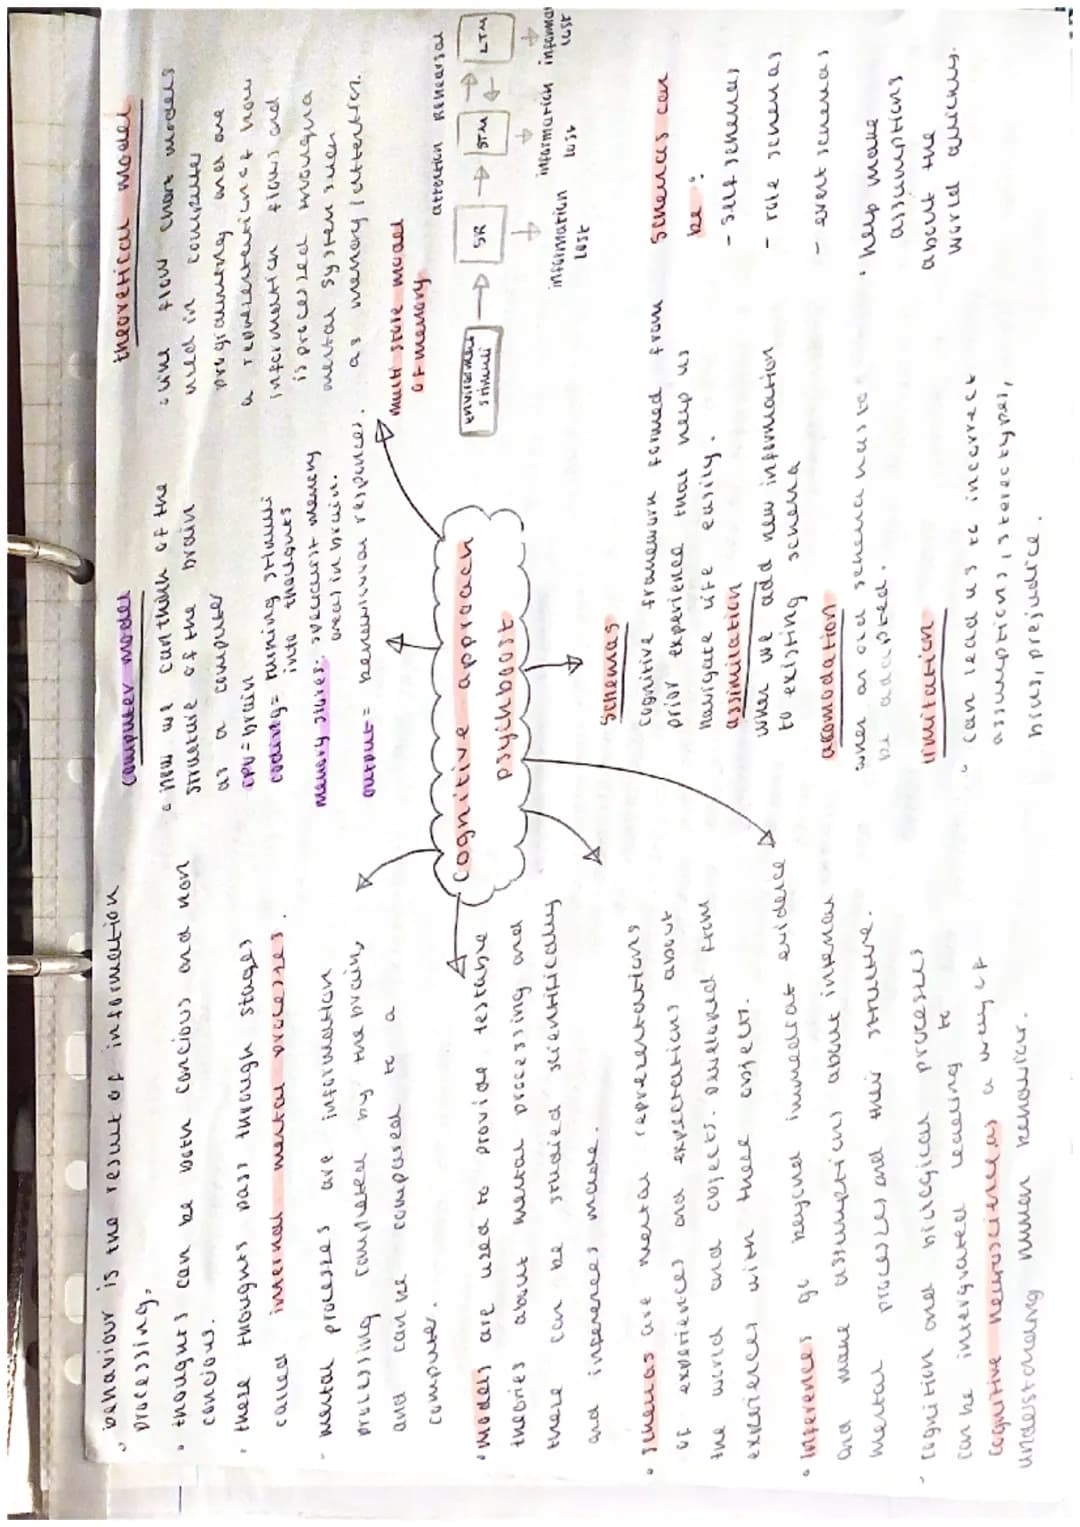 • behaviour is the result of information
processing.
• thoughts can be both concious and non
concious.
• these thoughts pass through stages
called internal mental processes.
- mental processes are information
processing completed by the brain,
and can be compared to a
computer.
• models are used to provide testable
theories about mental processing and
these can be studied scientifically
and inferences made.
• schemas are mental representations
of experiences and expectations about
the world and objects. Developed from
experiences with these objects.
• inferences go beyond immediat evidence
and make assumptions about internal
mental processes and their structure.
- cognition and biological processes
can be intergrated leading to
cognitive neuroscience as a way of
understanding human behaviour.
cognitive approach
psychboost
computer model
• how we can think of the
structure of the brain
as a computer
CPU = brain
coding = turning stimuli
into thoughts
memory stores: specialist memory
areas in brain.
output = behavioural responces.
theoretical model
flow chart models
used in computer
programming and are
a representation of how
information flows and
is processed through a
mental system such
as memory / attention.
multi store model
of memory
attention rehearsal
environment
stimuli
SR
STM
LTM
information
lost
information
lost
information
lost
schemas
cognitive framework formed from
prior experience that help us
navigate life easily.
assimilation
when we add new information
to existing schema
acomodation
when an old schema has to
be adapted.
limitation
• can lead us to incorrect
assumptions, stereotypes,
bias, prejudice.
schemas can
be:
- self schemas
- role schemas
- event schemas
• help make
assumptions
about the
world quickly.